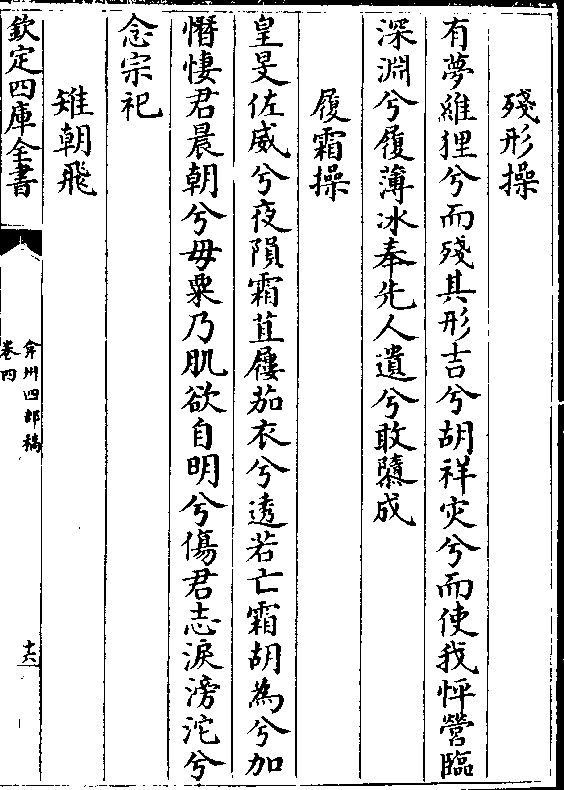 殘形操
有夢維狸兮而殘其形吉兮胡祥灾兮而使我怦營臨
深淵兮履薄冰奉先人遺兮敢隳成
履霜操
皇旻佐威兮夜隕霜苴屨茄衣兮透若亡霜胡為兮加
憯悽君晨朝兮毋粟乃肌欲自明兮傷君志淚滂沱兮
念宗祀
雉朝飛
欽定四庫全書
弇州四部稿
卷四
十六